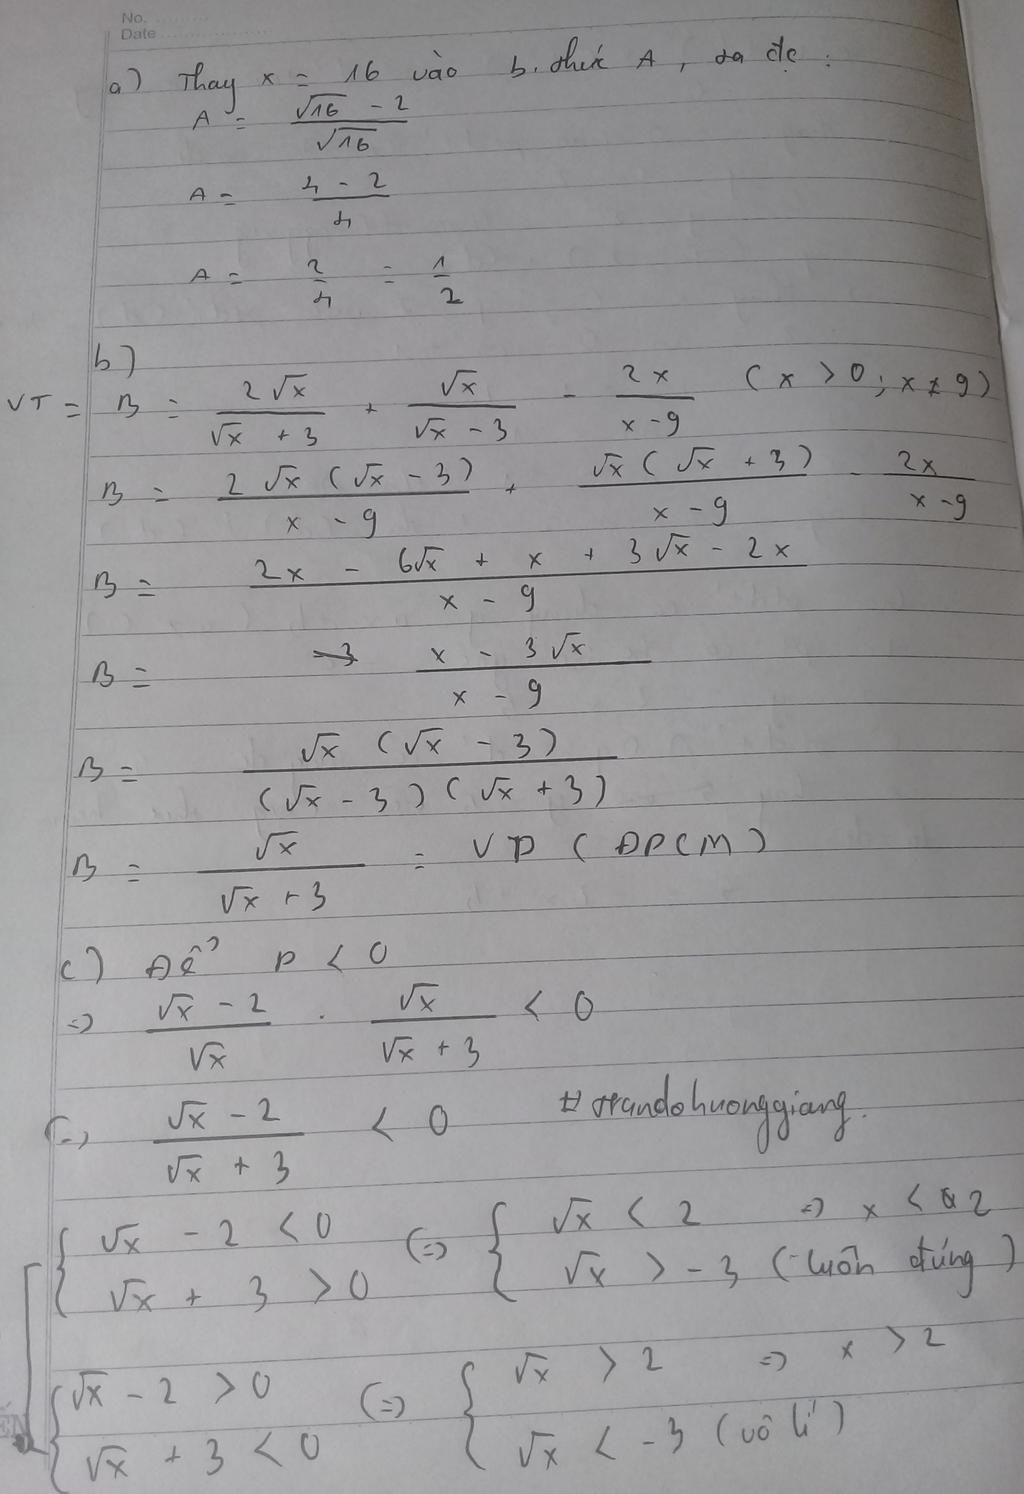 No.
Date
a) Thay x = 16 vào b. thức A, ta đc :
A = (√16 - 2)/√16
A = (4 - 2)/4
A = 2/4 = 1/2
b)
VT = B = 2√x/(√x + 3) + √x/(√x - 3) - 2x/(x - 9) (x > 0 ; x ≠ 9)
B = 2√x(√x - 3)/(x - 9) + √x(√x + 3)/(x - 9) - 2x/(x - 9)
B = (2x - 6√x + x + 3√x - 2x)/(x - 9)
B = (x - 3√x)/(x - 9)
B = √x(√x - 3)/((√x - 3)(√x + 3))
B = √x/(√x + 3) = VP (ĐPCM)
c) Để P < 0
=> (√x - 2)/√x . √x/(√x + 3) < 0
(=) (√x - 2)/(√x + 3) < 0 #trandohuonggiang.
{ √x - 2 < 0 (=) { √x < 2 => x < 2
√x + 3 > 0 √x > -3 (luôn đúng)
{ √x - 2 > 0 (=) { √x > 2 => x > 2
√x + 3 < 0 √x < -3 (vô lí)